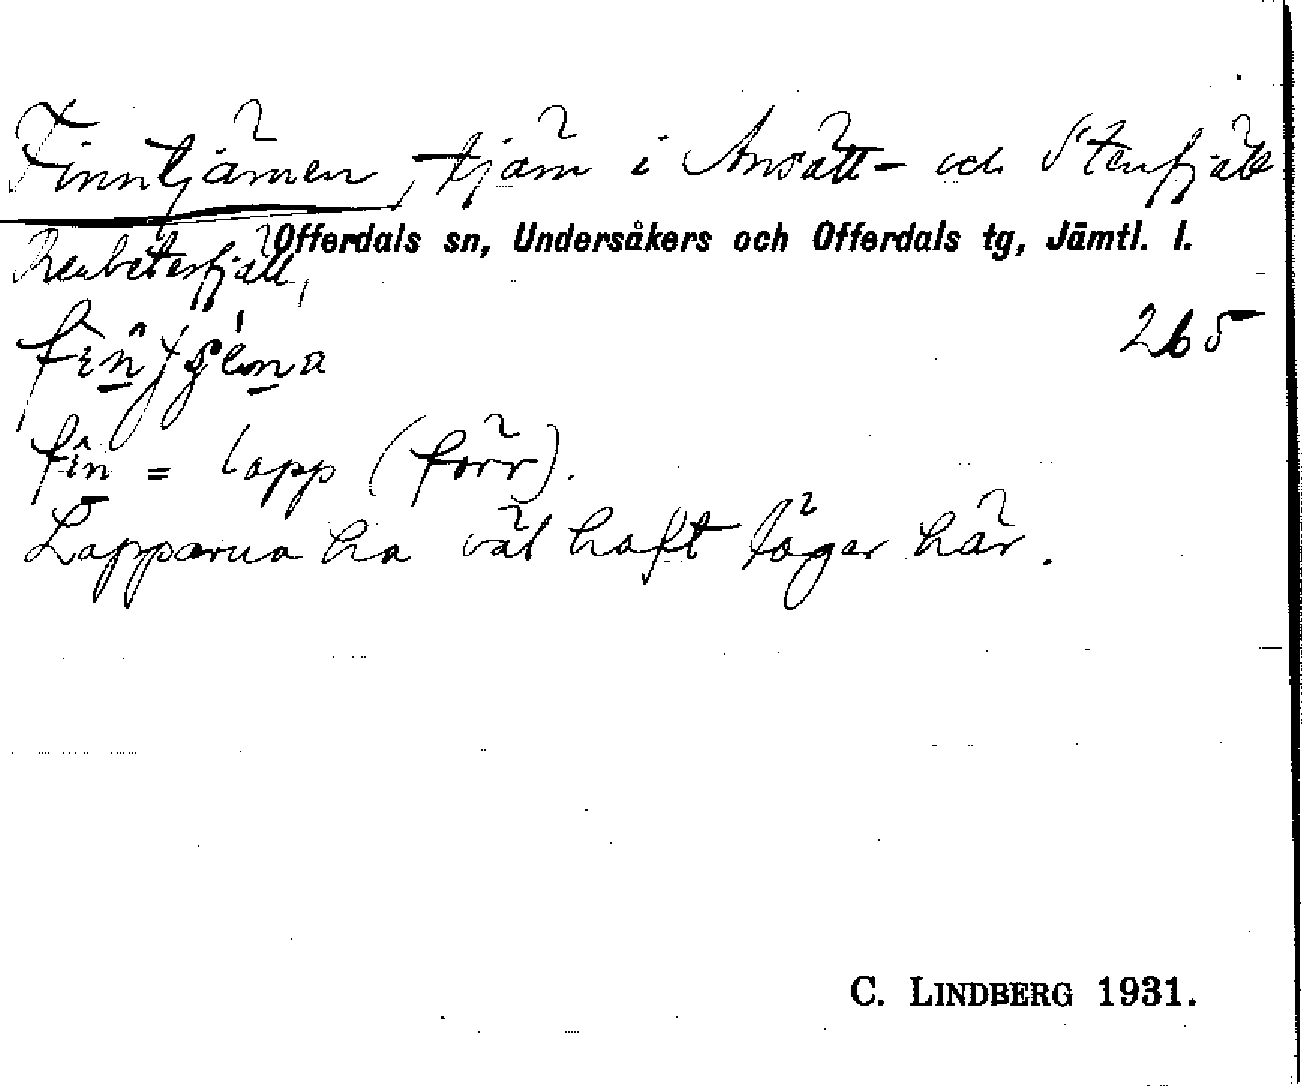 Finntjärnen, tjärn i Ansätt- och Stenfjäll
Renbetesfjäll, Offerdals sn, Undersåkers och Offerdals tg, Jämtl. l.
265
fin = lapp (förr).
Lapparna ha väl haft läger här.
C. LINDBERG 1931.